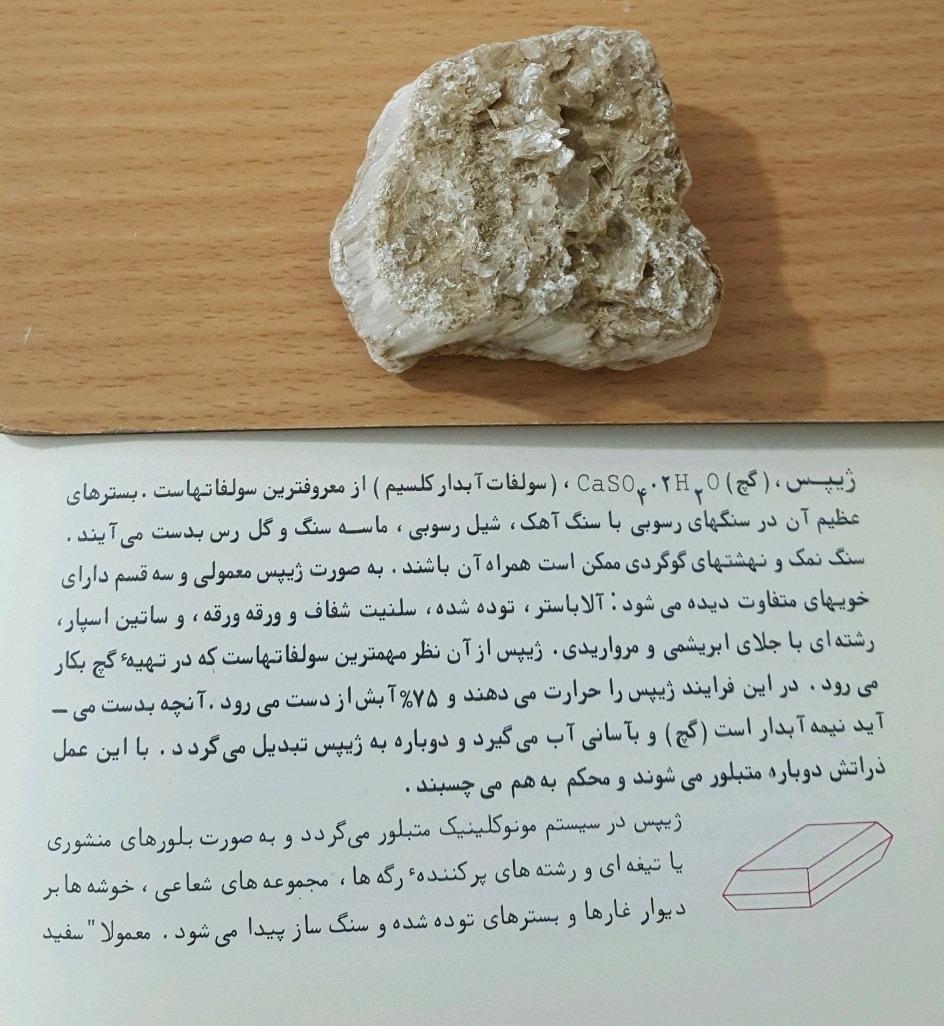 ژیپس، (گچ) CaSO۴·۲H۲O ، (سولفات آبدار کلسیم) از معروفترین سولفاتهاست . بسترهای
عظیم آن در سنگهای رسوبی با سنگ آهک، شیل رسوبی، ماسه سنگ و گل رس بدست می‌آیند .
سنگ نمک و نهشتهای گوگردی ممکن است همراه آن باشند . به صورت ژیپس معمولی و سه قسم دارای
خویهای متفاوت دیده می شود : آلاباستر، توده شده، سلنیت شفاف و ورقه ورقه، و ساتین اسپار،
رشته‌ای با جلای ابریشمی و مرواریدی. ژیپس از آن نظر مهمترین سولفاتهاست که در تهیهٔ گچ بکار
می رود . در این فرایند ژیپس را حرارت می دهند و ۷۵% آبش از دست می رود . آنچه بدست می –
آید نیمه آبدار است (گچ) و بآسانی آب می‌گیرد و دوباره به ژیپس تبدیل می‌گردد . با این عمل
ذراتش دوباره متبلور می شوند و محکم به هم می چسبند .
ژیپس در سیستم مونوکلینیک متبلور می‌گردد و به صورت بلورهای منشوری
یا تیغه ای و رشته های پرکنندهٔ رگه ها، مجموعه های شعاعی، خوشه ها بر
دیوار غارها و بسترهای توده شده و سنگ ساز پیدا می شود . معمولا" سفید